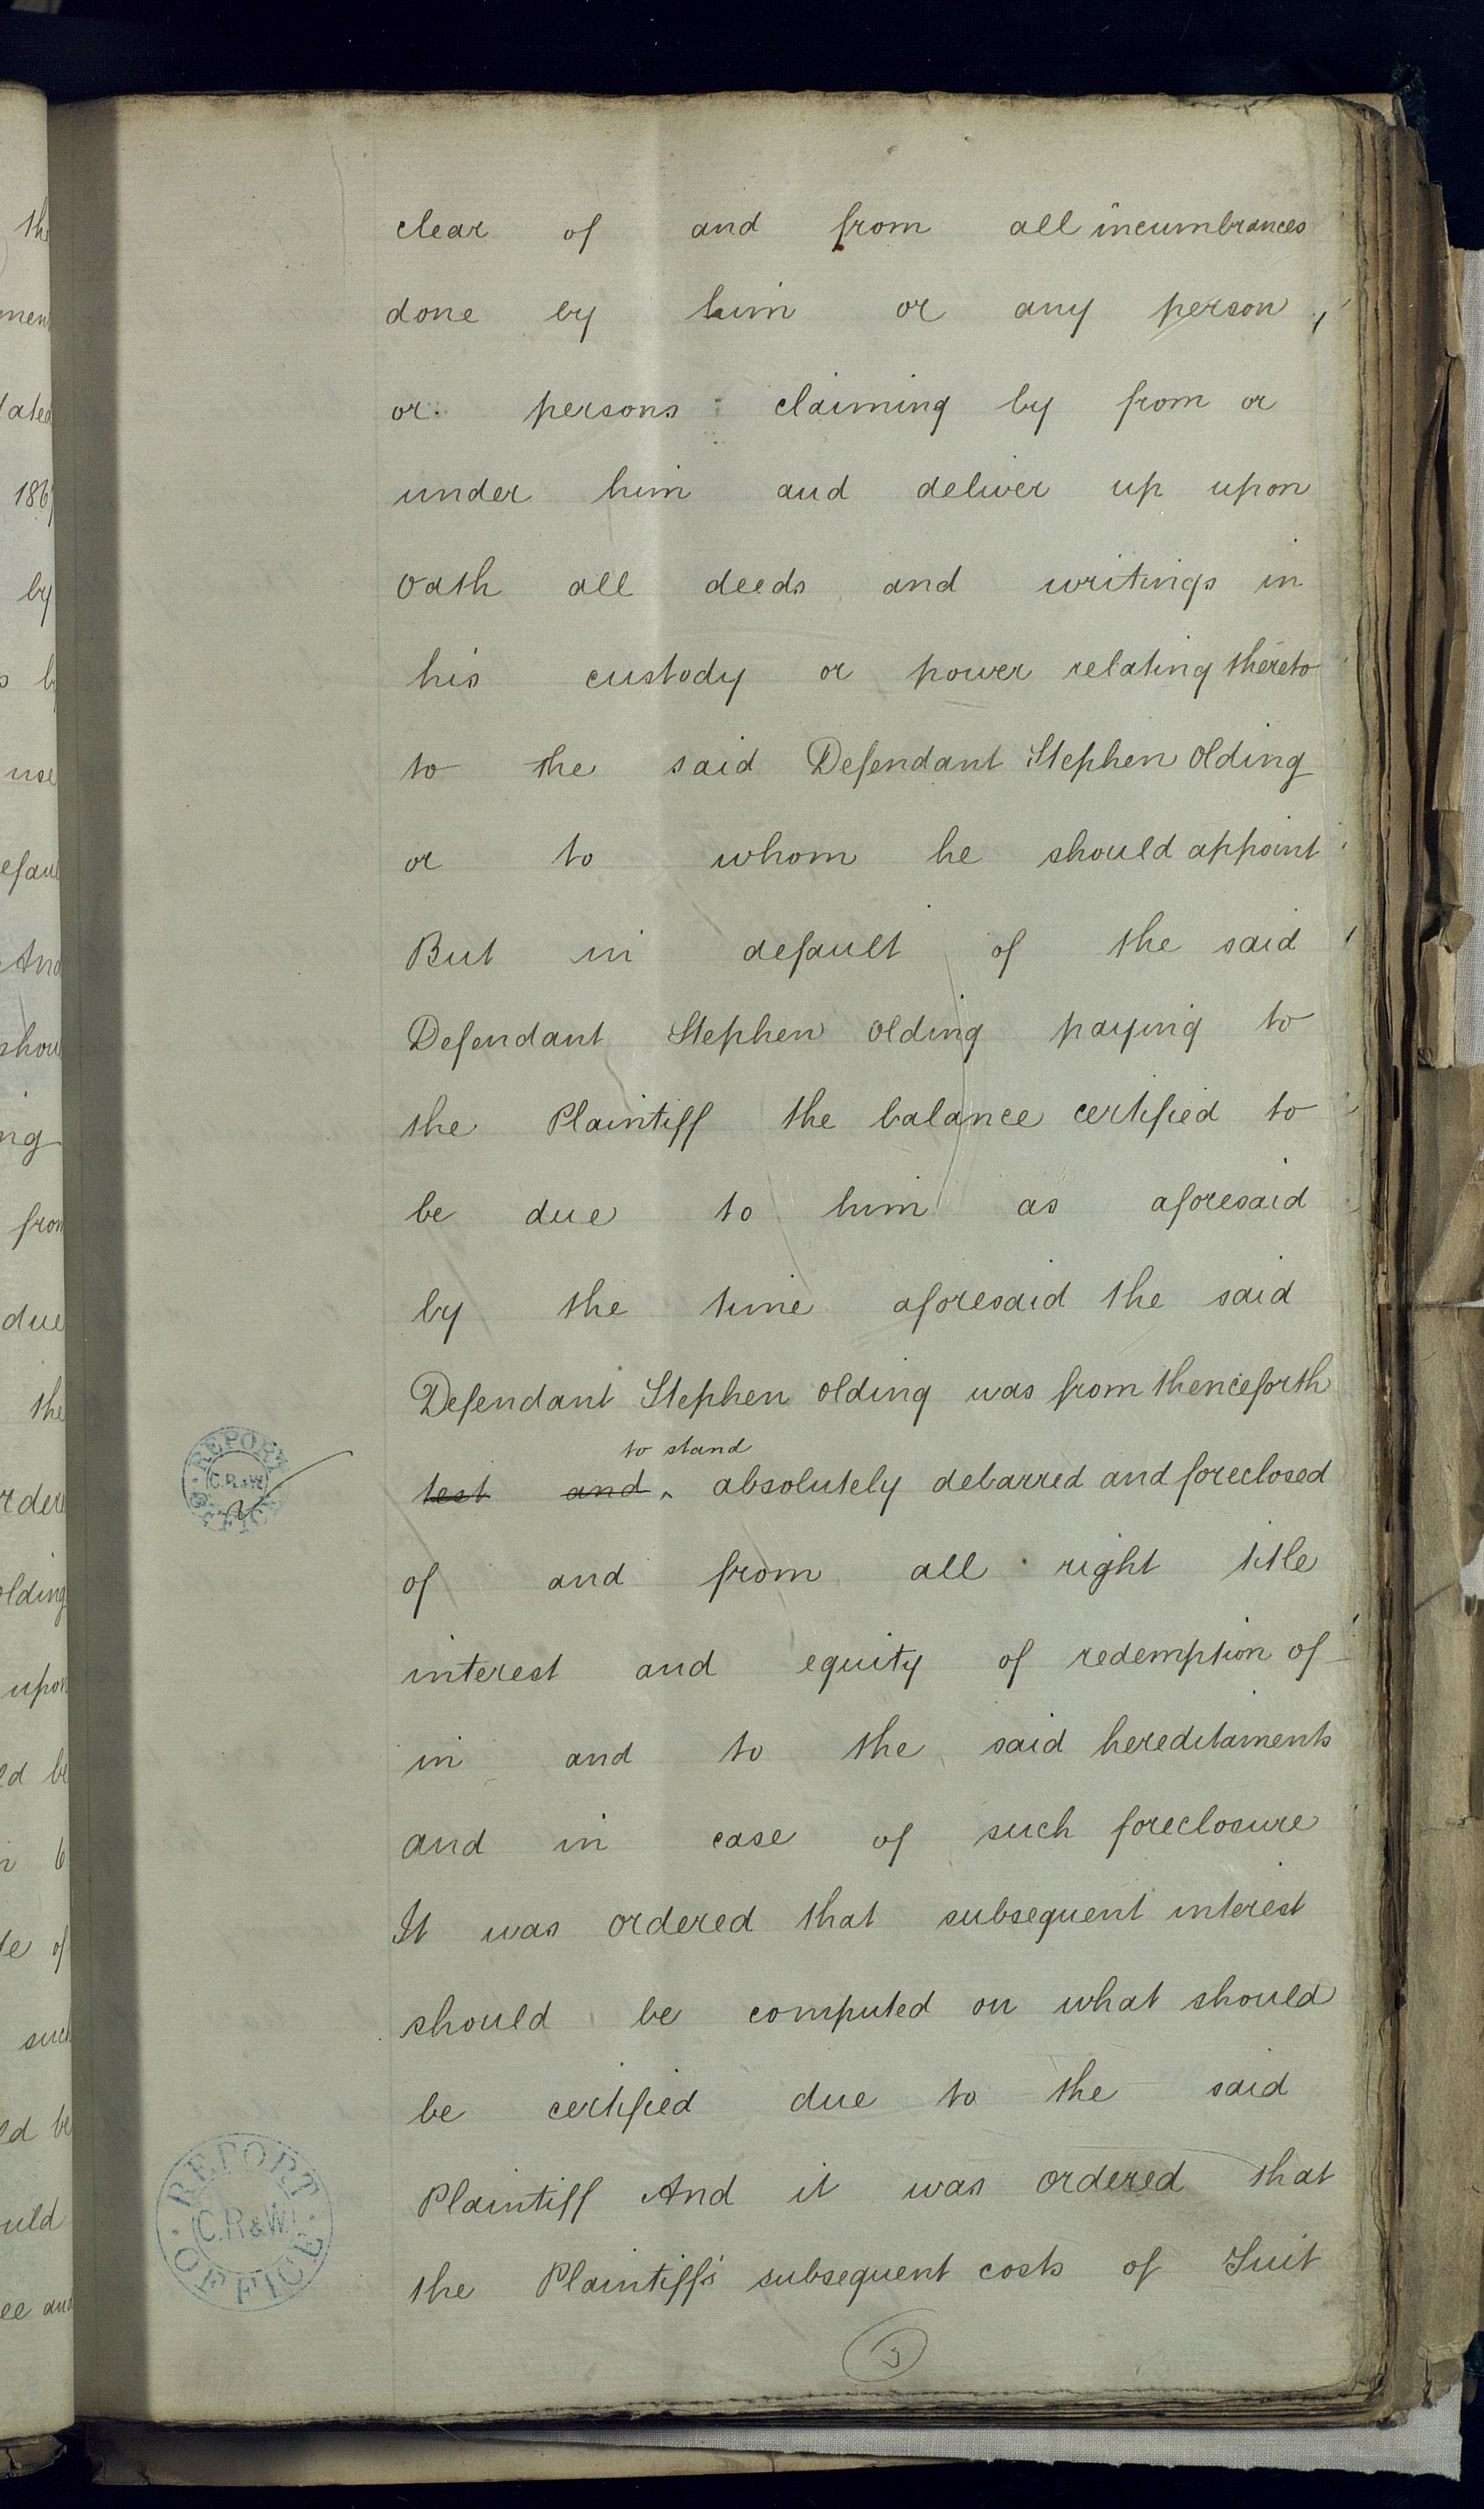 clear of and from all incumbrances
done by him or any person
or persons claiming by from or
under him and deliver up upon
Oath all deeds and writings in
his custody or power relating thereto
to the said Defendant Stephen Olding
or to whom he should appoint
But in default of the said
Defendant Stephen Olding paying to
the Plaintiff the balance certified to
be due to him as aforesaid
by the time aforesaid the said
Defendant Stephen Olding was from thenceforth
to stand
test and ‸ absolutely debarred and foreclosed
of and from all right title
interest and equity of redemption of
in and to the said hereditaments
and in case of such foreclosure
It was ordered that subsequent interest
should be computed on what should
be certified due to the said
Plaintiff And it was ordered that
the Plaintiff's subsequent costs of Suit
REPORT OFFICE
C.R.&W.
REPORT OFFICE
C.R&W.
the
186
by
use
And
ng
from
due
the
olding
upon
of
such